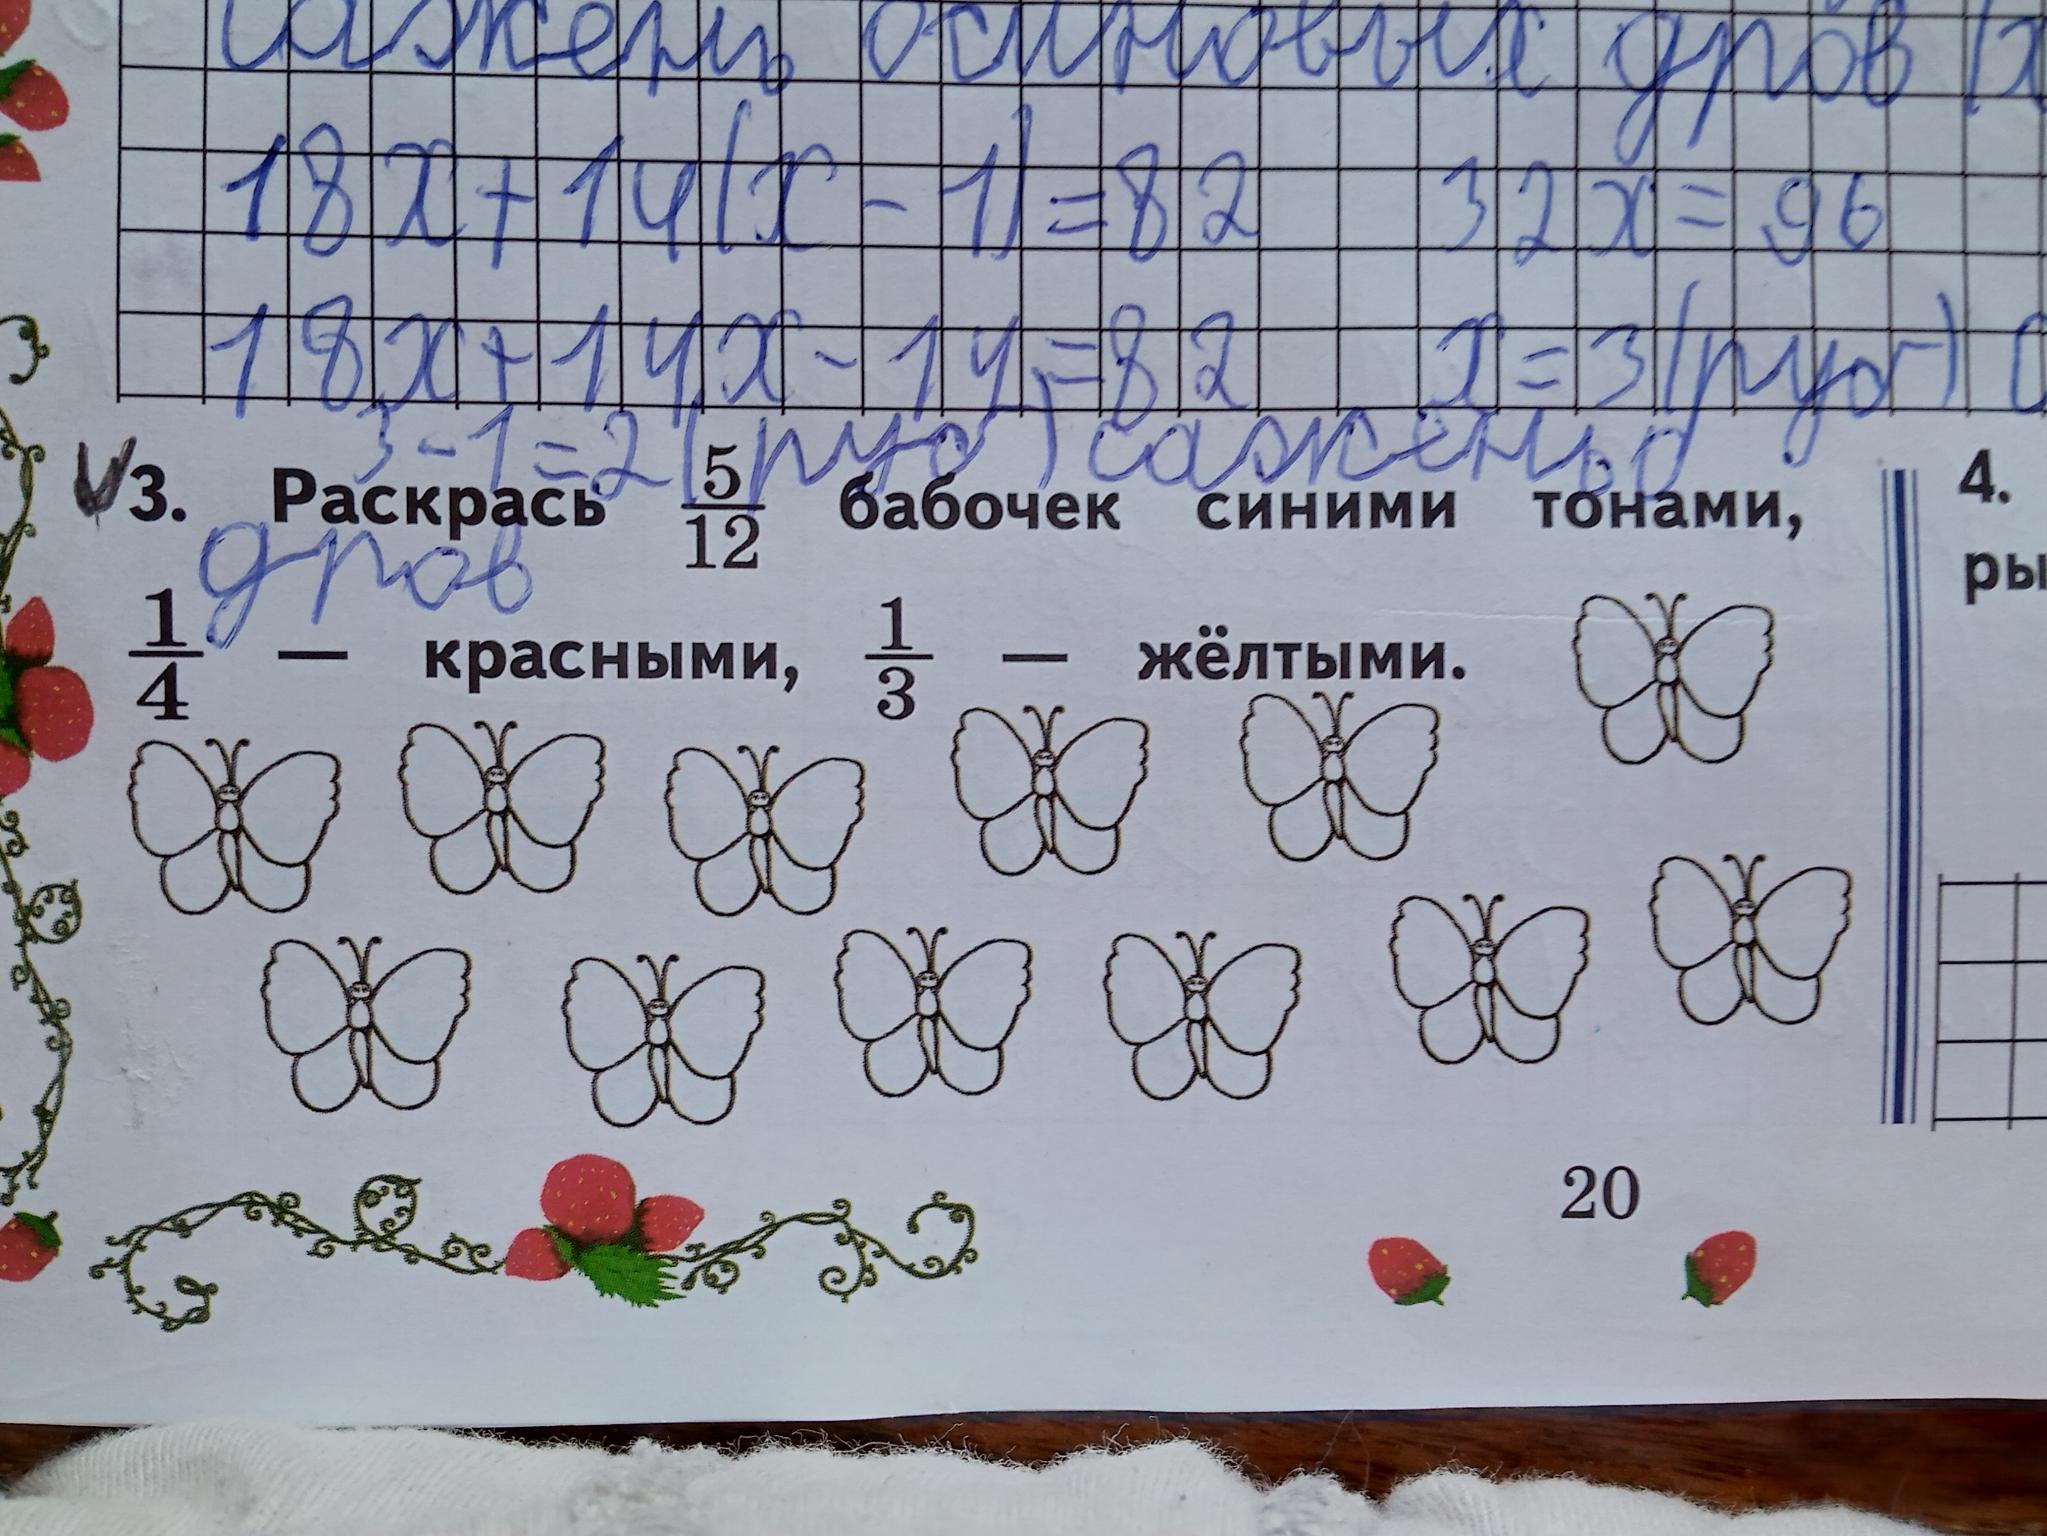 сажень осиновых дров (x
18x+14(x-1)=82 32x=96
18x+14x-14=82 x=3(руб)
3-1=2(руб) сажень
дров
3. Раскрась 5/12 бабочек синими тонами,
1/4 — красными, 1/3 — жёлтыми.
4.
ры
20